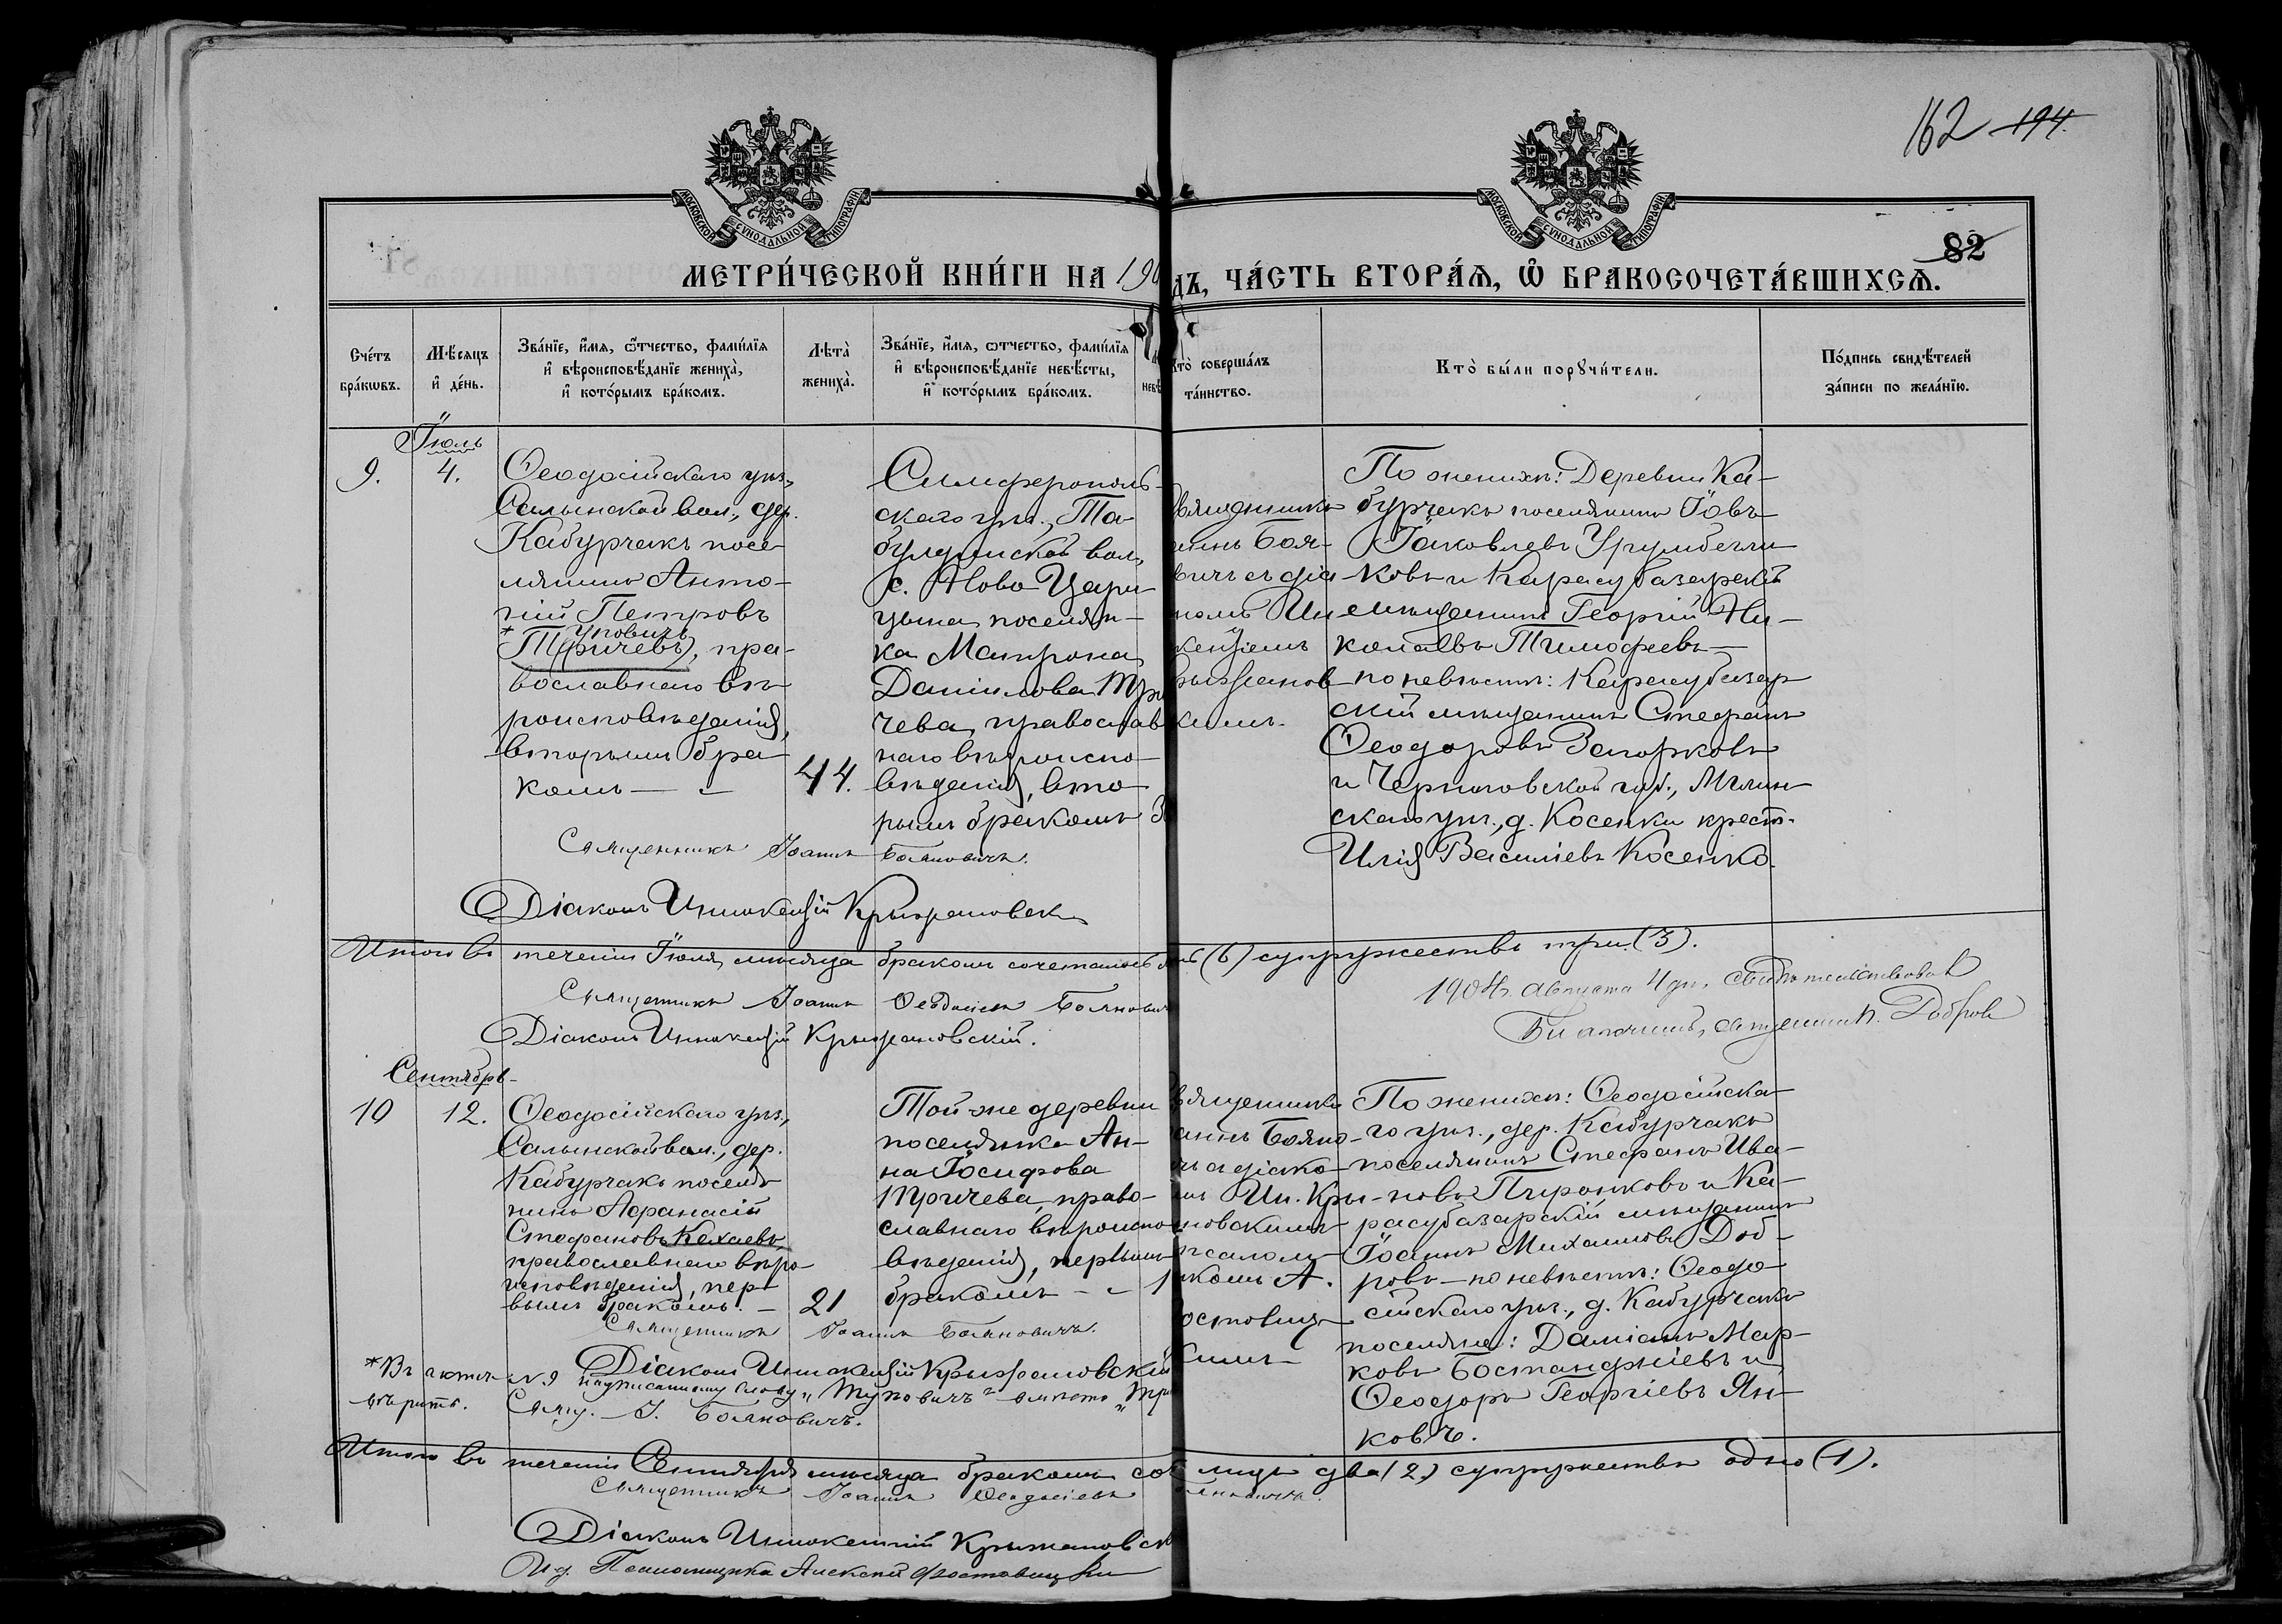 162 194.
82
МОСКОВСКОЙ СѴНОДАЛЬНОЙ ТИПОГРАФІИ
МОСКОВСКОЙ СѴНОДАЛЬНОЙ ТИПОГРАФІИ
МЕТРИ́ЧЕСКОЙ КНИ́ГИ НА 190
дъ, ЧА́СТЬ ВТОРА́Ѧ, Ѽ БРАКОСОЧЕТА́ВШИХСѦ.
Сче́тъ бра́кѡвъ.
Мѣ́сяцъ и҆ де́нь.
Зва́нїе, и҆́мя, ѻ҆́тчество, фами́лїя
и҆ вѣроисповѣ́данїе жениха̀,
и҆ кото́рымъ бра́комъ.
Лѣта̀ жениха̀.
Зва́нїе, и҆́мя, ѻ҆́тчество, фами́лїя
и҆ вѣроисповѣ́данїе невѣ́сты,
и҆ кото́рымъ бра́комъ.
Кто̀ соверша́лъ
та́инство.
Кто̀ бы́ли порꙋчи́тели.
По́дпись свидѣ́телей
за́писи по жела́нїю.
Іюль
9.
4.
Ѳеодосійскаго уѣз.,
Салынской вол., дер.
Кабурчакъ посе-
лянинъ Анто-
ній Петровъ
* Туповичъ
(Тричевъ), пра-
вославнаго вѣ-
роисповѣданія,
вторымъ бра-
комъ —
44.
Симферополь-
скаго уѣз., Та-
булдинской вол.,
с. Ново Цари-
цына поселян-
ка Матрона
Даніилова Три
чева, православ
наго вѣроиспо-
вѣданія, вто-
рымъ бракомъ 3
вященникъ
аннъ Боя-
вичъ съ діа
номъ Ин
кентіемъ
рыжанов
кимъ.
По женихѣ: Деревни Ка-
бурчакъ поселянинъ Іовъ
Іаковлевъ Урумбегли-
ковъ и Карасубазарскій
мѣщанинъ Георгій Ни-
колаевъ Тимофеевъ —
по невѣстѣ: Карасубазар
скій мѣщанинъ Стефанъ
Ѳеодоровъ Загорковъ
и Черниговской губ., Мглин
скаго уѣз., д. Косенки крест.
Илія Василіевъ Косенко.
Священникъ Іоаннъ Бояновичъ.
Діаконъ Иннокентій Крыжановск
Итого въ теченіи Іюля мѣсяца бракомъ сочеталось
(6) супружествъ три (3).
Священникъ Іоаннъ Ѳеодосіевъ Боянович
Діаконъ Иннокентій Крыжановскій.
1904 г. Августа 4 дн. свидѣтельствовалъ
Благочинный, священникъ Добровъ
Сентябрь
10
12.
Ѳеодосійскаго уѣз.,
Салынской вол., дер.
Кабурчакъ поселя-
нинъ Аѳанасій
Стефановъ Кехаевъ,
православнаго вѣро-
исповѣданія, пер-
вымъ бракомъ. —
21
Той-же деревни
поселянка Ан-
на Іосифова
Тричева, право-
славнаго вѣроиспо
вѣданія, первымъ
бракомъ — 1
вященникъ
аннъ Бояно-
ъ діако-
мъ Ин. Кры-
новскимъ
псалом
комъ А.
остовиц
кимъ
По женихѣ: Ѳеодосійска-
го уѣз., дер. Кабурчакъ
поселянинъ Стефанъ Ива-
новъ Пиронковъ и Ка-
расубазарскій мѣщанинъ
Іоаннъ Михаиловъ Доб-
ровъ — по невѣстѣ: Ѳеодо-
сійскаго уѣз., д. Кабурчакъ
поселяне: Даміанъ Мар-
ковъ Бостанджіевъ и
Ѳеодоръ Георгіевъ Ян-
ковъ.
Священникъ Іоаннъ Бояновичъ.
Діаконъ Иннокентій Крыжановскій
* Въ актѣ № 9 надписанному слову „Туповичъ“ вмѣсто „Три
вѣрить. Свящ. І. Бояновичъ.
Итого въ теченіи Сентября мѣсяца бракомъ соч
лицъ два (2) супружество одно (1).
Священникъ Іоаннъ Ѳеодосіевъ
Діаконъ Иннокентій Крыжановск
И. д. Псаломщика Алексѣй Фростовицкій